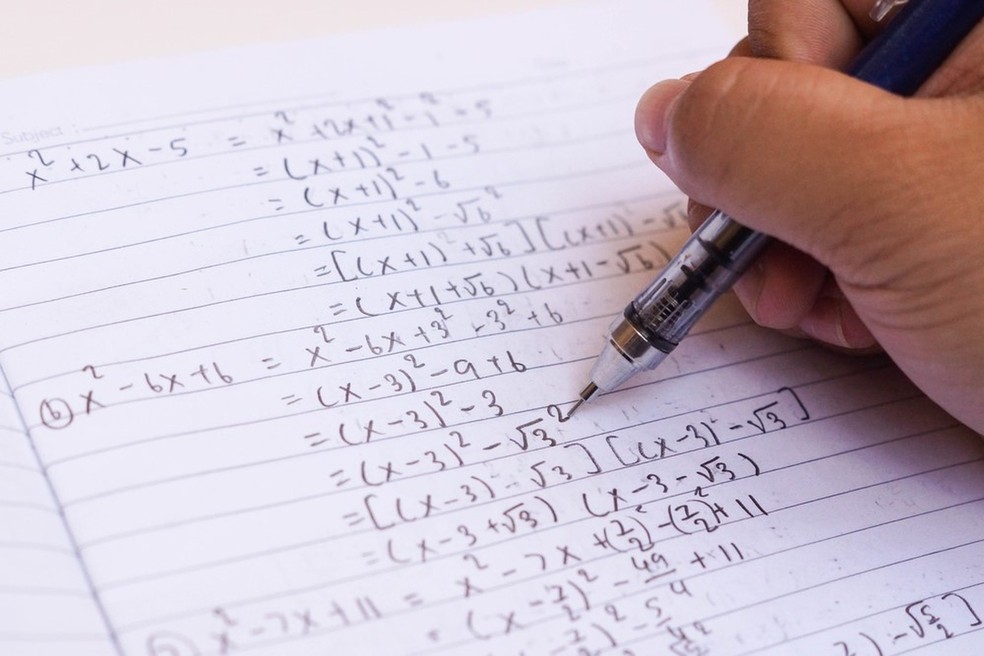 Subject :
x² + 2x - 5 = x² + 2x + 1² - 1² - 5
= (x+1)² - 1 - 5
= (x+1)² - 6
= (x+1)² - √6²
= [(x+1) + √6] [(x+1) - √6
= (x+1+√6) (x+1-√6)
(b) x² - 6x + 6 = x² - 6x + 3² - 3² + 6
= (x-3)² - 9 + 6
= (x-3)² - 3
= (x-3)² - √3²
= [(x-3) - √3] [(x-3) - √3]
= (x-3+√3) (x-3-√3)
x² - 7x + 11 = x² - 7x + (7/2)² - (7/2)² + 11
(x - 7/2)² - 49/4 + 11
)² - 5/4
) - √5/2]